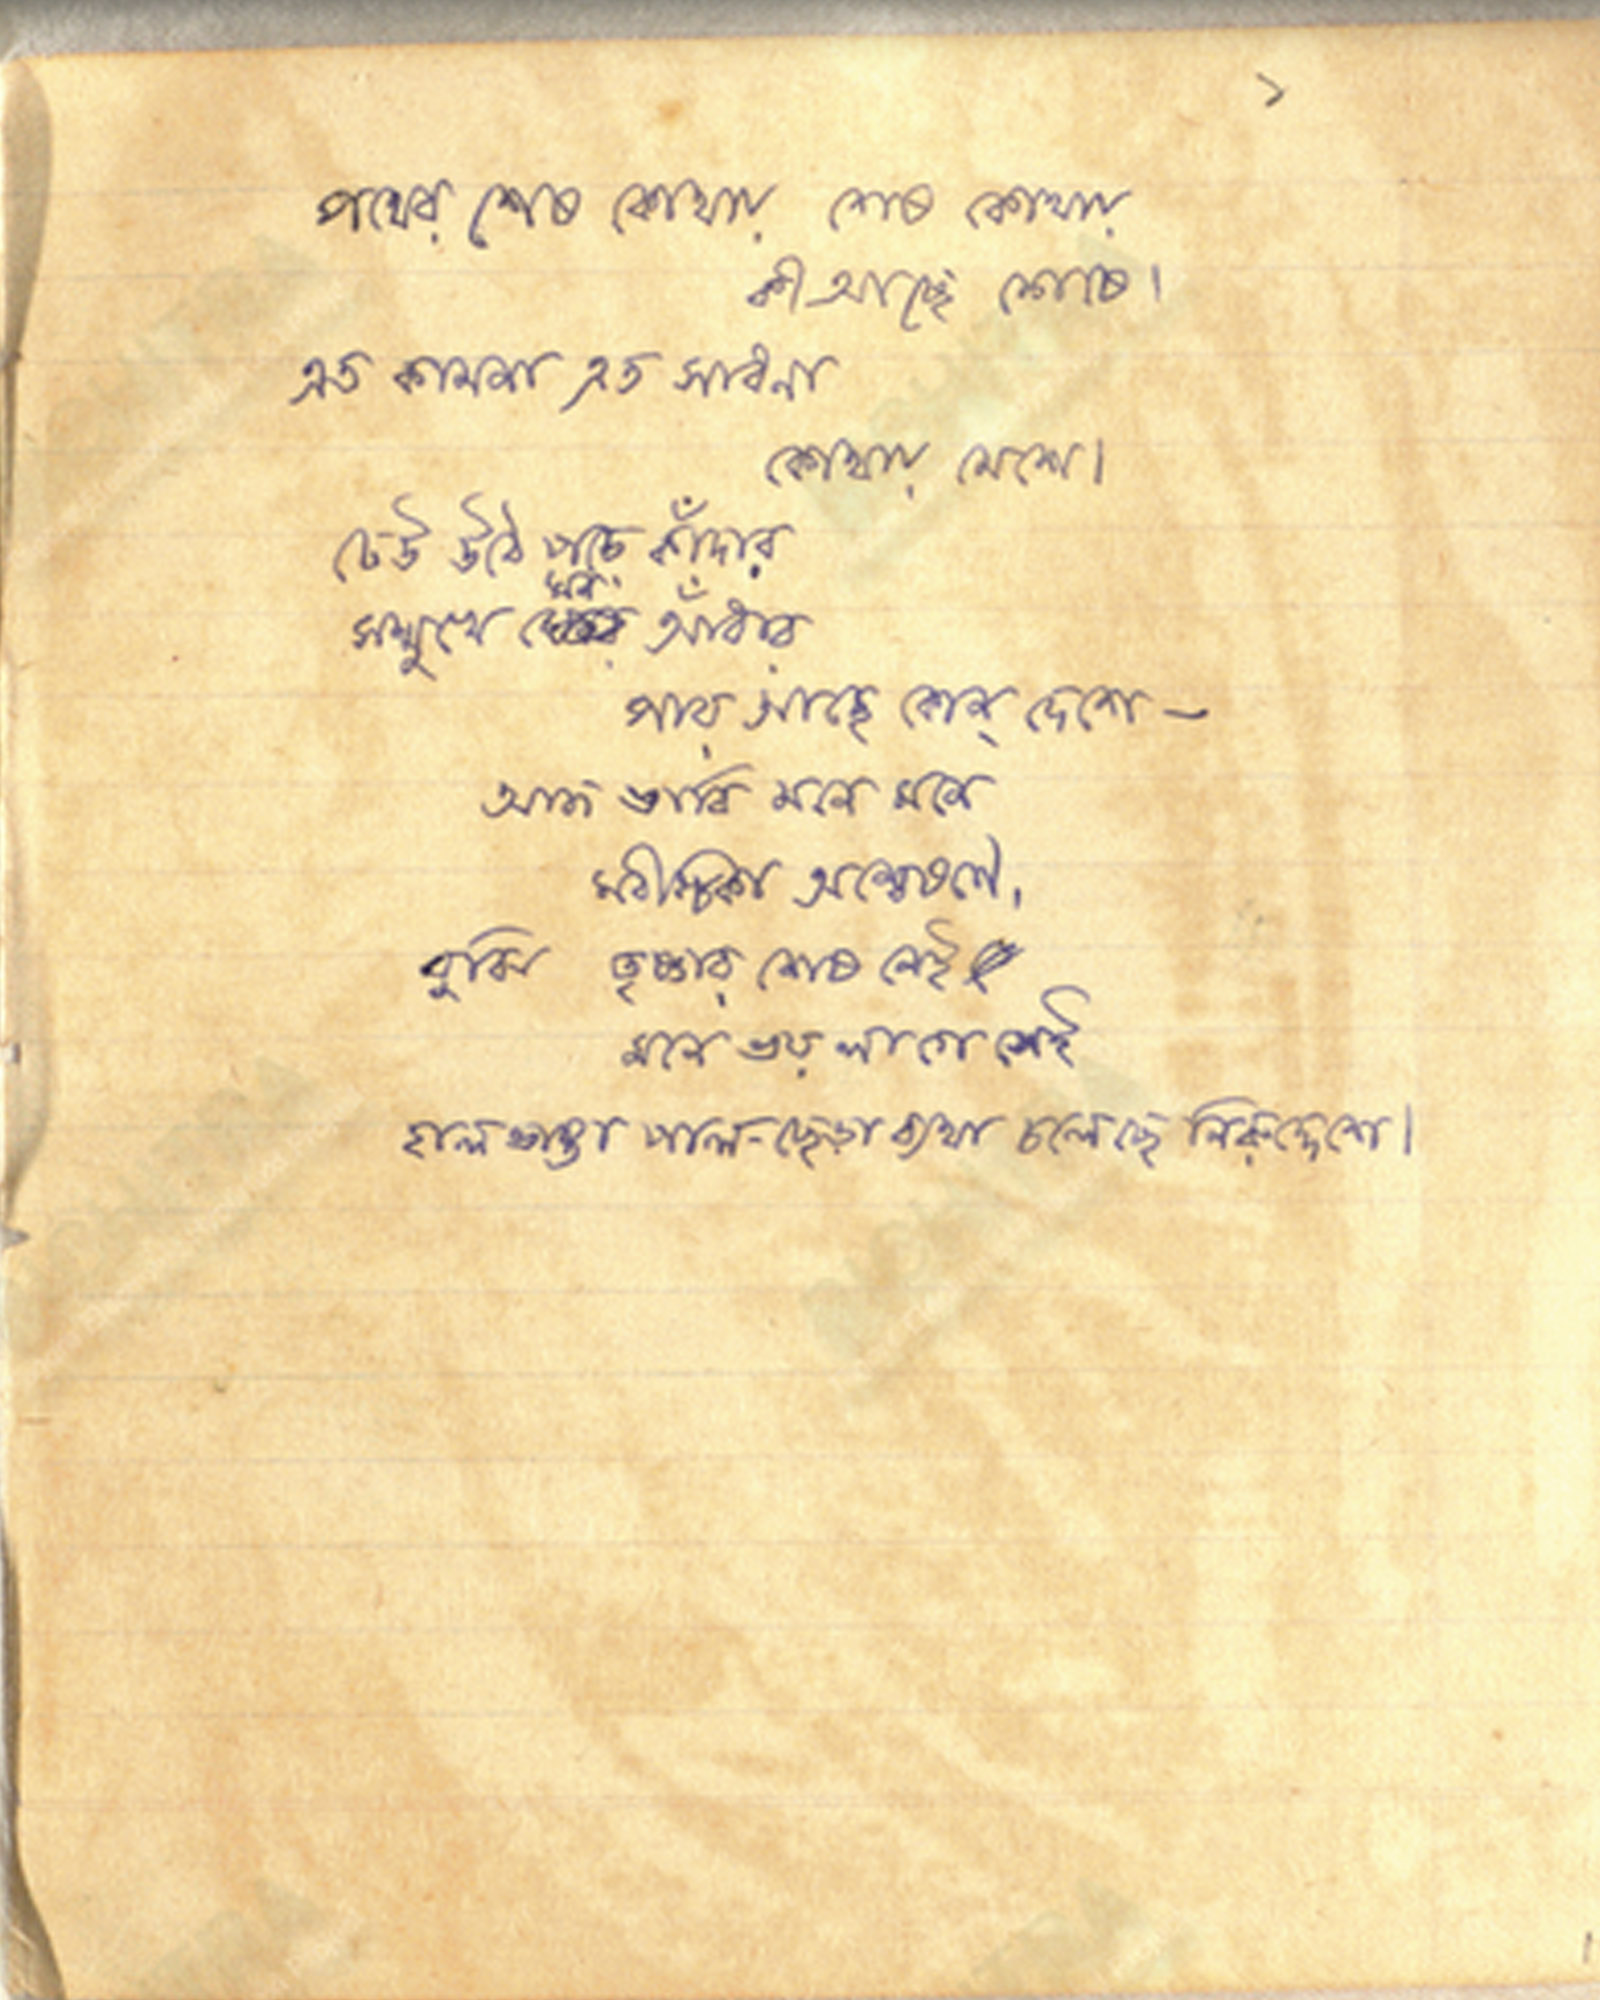 ১
পথের শেষ কোথায় শেষ কোথায়
কী আছে শেষে।
এত কামনা এত সাধনা
কোথায় মেশে।
ঢেউ উঠে পড়ে কাঁদার
ঘন
সম্মুখে আঁধার
পার আছে কোন্ দেশে —
আজ ভাবি মনে মনে
মরীচিকা অন্বেষণে,
বুঝি তৃষ্ণার শেষ নেই
মনে ভয় লাগে সেই
হাল ভাঙা পাল-ছেঁড়া ব্যথা চলেছে নিরুদ্দেশে।